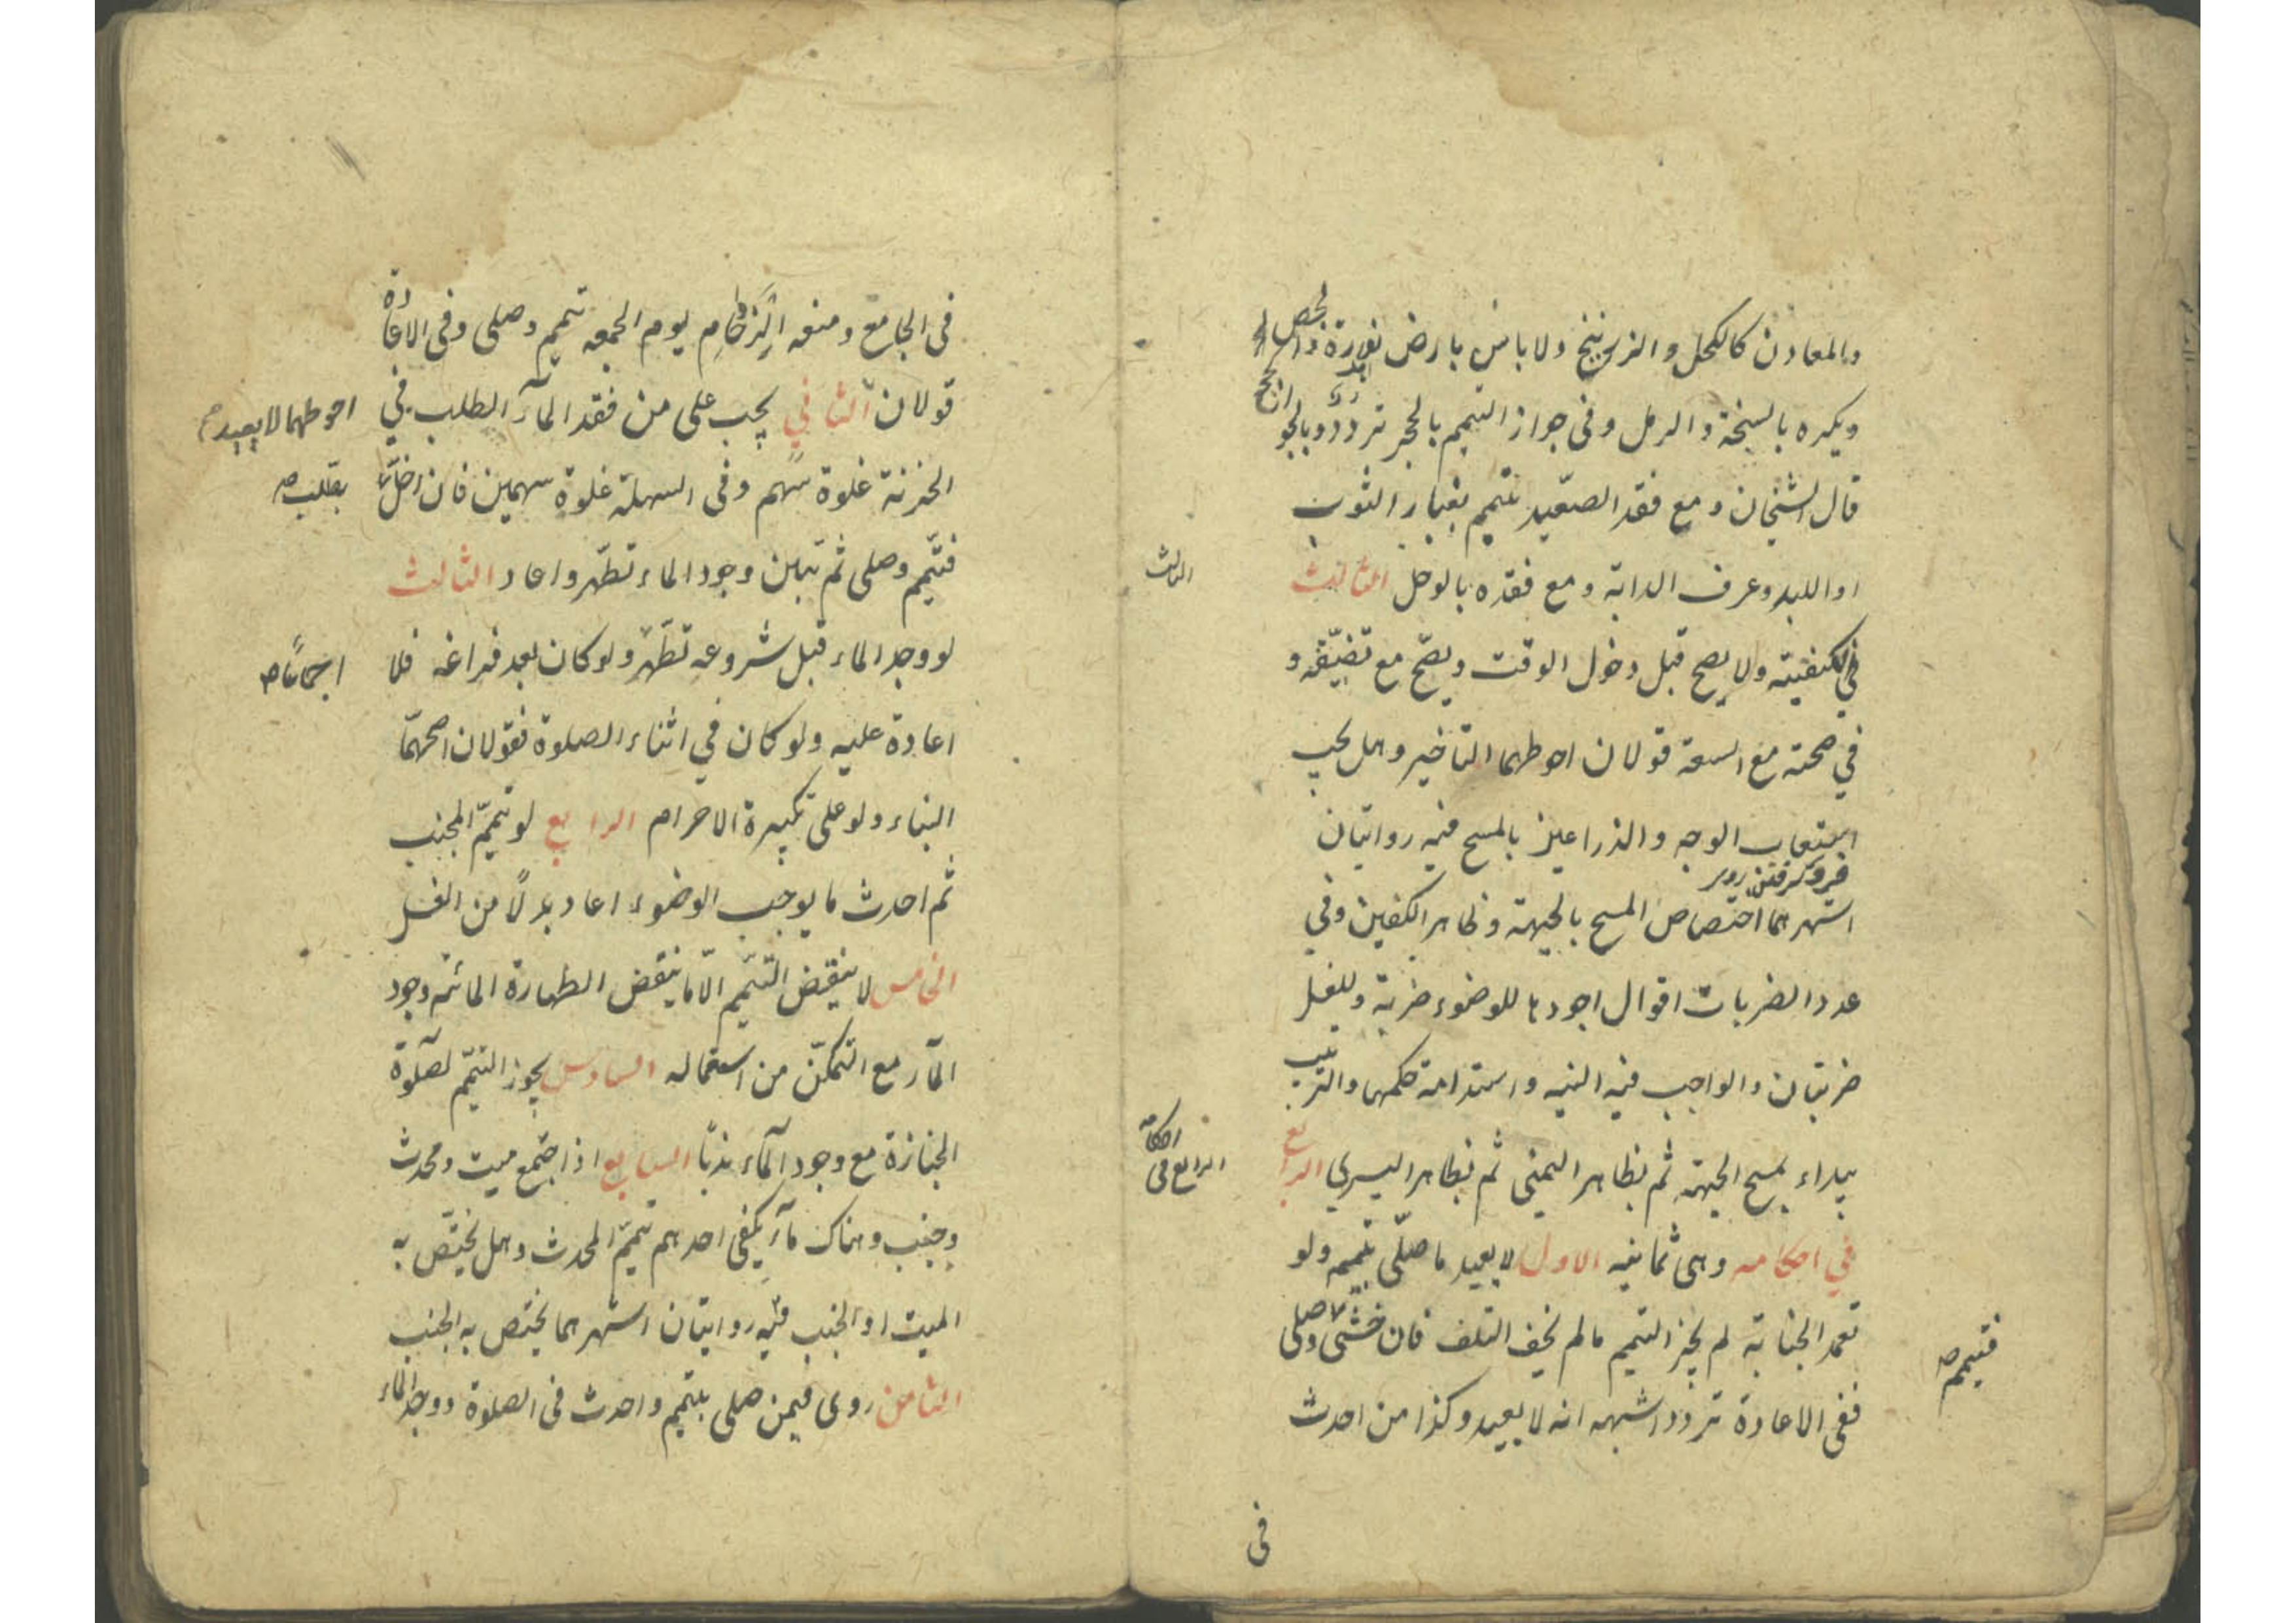 والمعادن كالكحل والزرنيخ ولا باس بارض النورة والجص
ويكره بالسبخة والرمل وفى جواز التيمم بالحجر تردد وبالجواز
قال الشيخان ومع فقد الصّعيد تيمم بغبار الثوب
او اللبد وعرف الدابة ومع فقده بالوحل الثالث
الثالث
في الكيفيته ولا يصح قبل دخول الوقت ويصّح مع تضيّقه و
في صحته مع السعة قولان احوطهما التاخير وهل يجب
استيعاب الوجه والذراعين بالمسح فيه روايتان
اشهرهما اختصاص المسح بالجبهة وظاهر الكفين وفي
عدد الضربات اقوال اجودها للوضوء ضربة وللغسل
ضربتان والواجب فيه النيه واستدامة حكمها والترتيب
يبداء بمسح الجبهته ثم بظاهر اليمنى ثم بظاهر اليسري الرابع
الرابع فى احكامه
في احكامه وهى ثمانيه الاول لا يعيد ما صلّى بتيممه ولو
تعمد الجنابة لم يجز التيمم ما لم يخف التلف فان خشى وصلى
فتيمم
ففى الاعادة تردد اشبهه انه لا يعيد وكذا من احدث
فى
فى الجامع ومنعه الزحام يوم الجمعه تيمم وصلى وفى الاعادة
قولان الثاني يجب على من فقد المآء الطلب في
احوطهما لا يعيد
الحزنة غلوة سهم وفى السهلة غلوة سهمين فان اخلّ
بطلب
فتيّمم وصلى ثم تبين وجود الماء تطّهر واعاد الثالث
لو وجد الماء قبل شروعه تطّهر ولو كان بعد فراغه فلا
اجماعًا
اعادة عليه ولو كان في اثناء الصلوة فقولان اصحهّما
البناء ولو على تكبيرة الاحرام الرابع لو تيمّم المجنب
ثم احدث ما يوجب الوضوء اعاد بدلًا من الغسل
الخامس لا ينقض التيّمم الّا ما ينقض الطهارة المائته وجود
المآء مع التمكّن من استعماله السادس يجوز التيّمم لصلوة
الجنازة مع وجود المآء ندبًا السابع اذا اجتمع ميت ومحدث
وجنب وهناك مآء يكفى احدهم تيمّم المحدث وهل يختّص به
الميت او الجنب فيه روايتان اشهرهما يختص به الجنب
الثامن روى فيمن صلى بتيمم واحدث فى الصلوة ووجد الماء